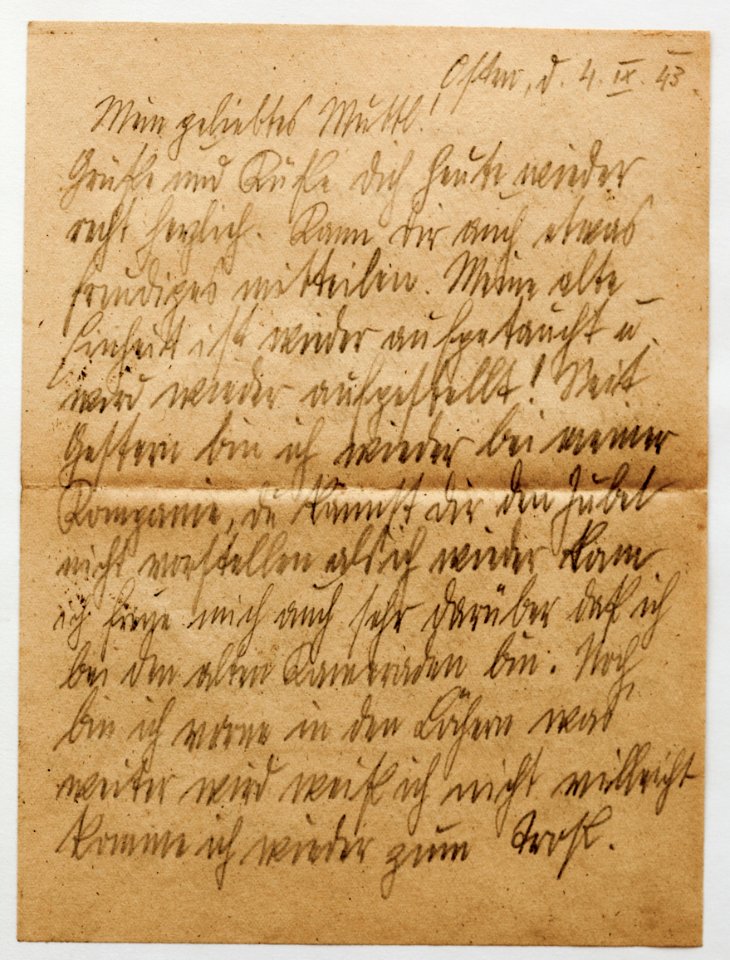 Osten, d. 4. IX. 43.
Mein geliebtes Muttl!
Grüße und Küße dich heute wieder
recht herzlich. Kann dir auch etwas
freudiges mitteilen. Meine alte
Einheit ist wieder aufgetaucht u.
wird wieder aufgestellt! Seit
Gestern bin ich wieder bei meiner
Kompanie, du kannst dir den Jubel
nicht vorstellen als ich wieder kam
ich freue mich auch sehr darüber daß ich
bei den alten Kameraden bin. Noch
bin ich vorne in den Löchern was
weiter wird weiß ich nicht villeicht
komme ich wieder zum Troß.